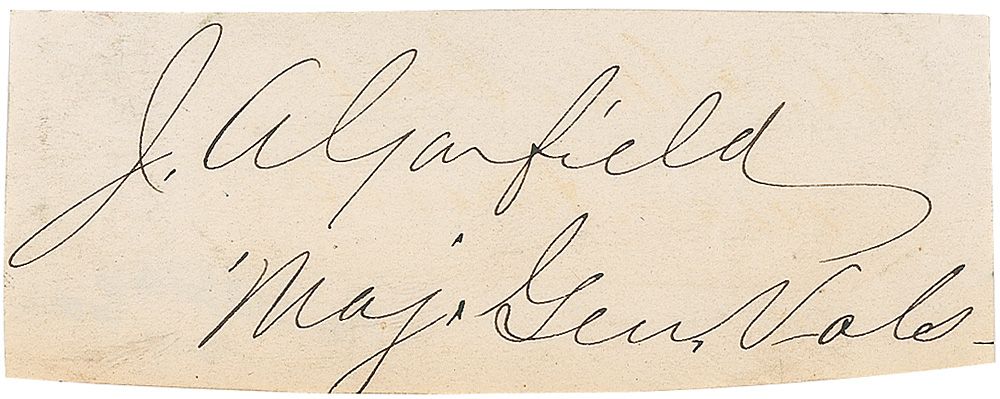 J. A Garfield
Maj. Gen, Vols-